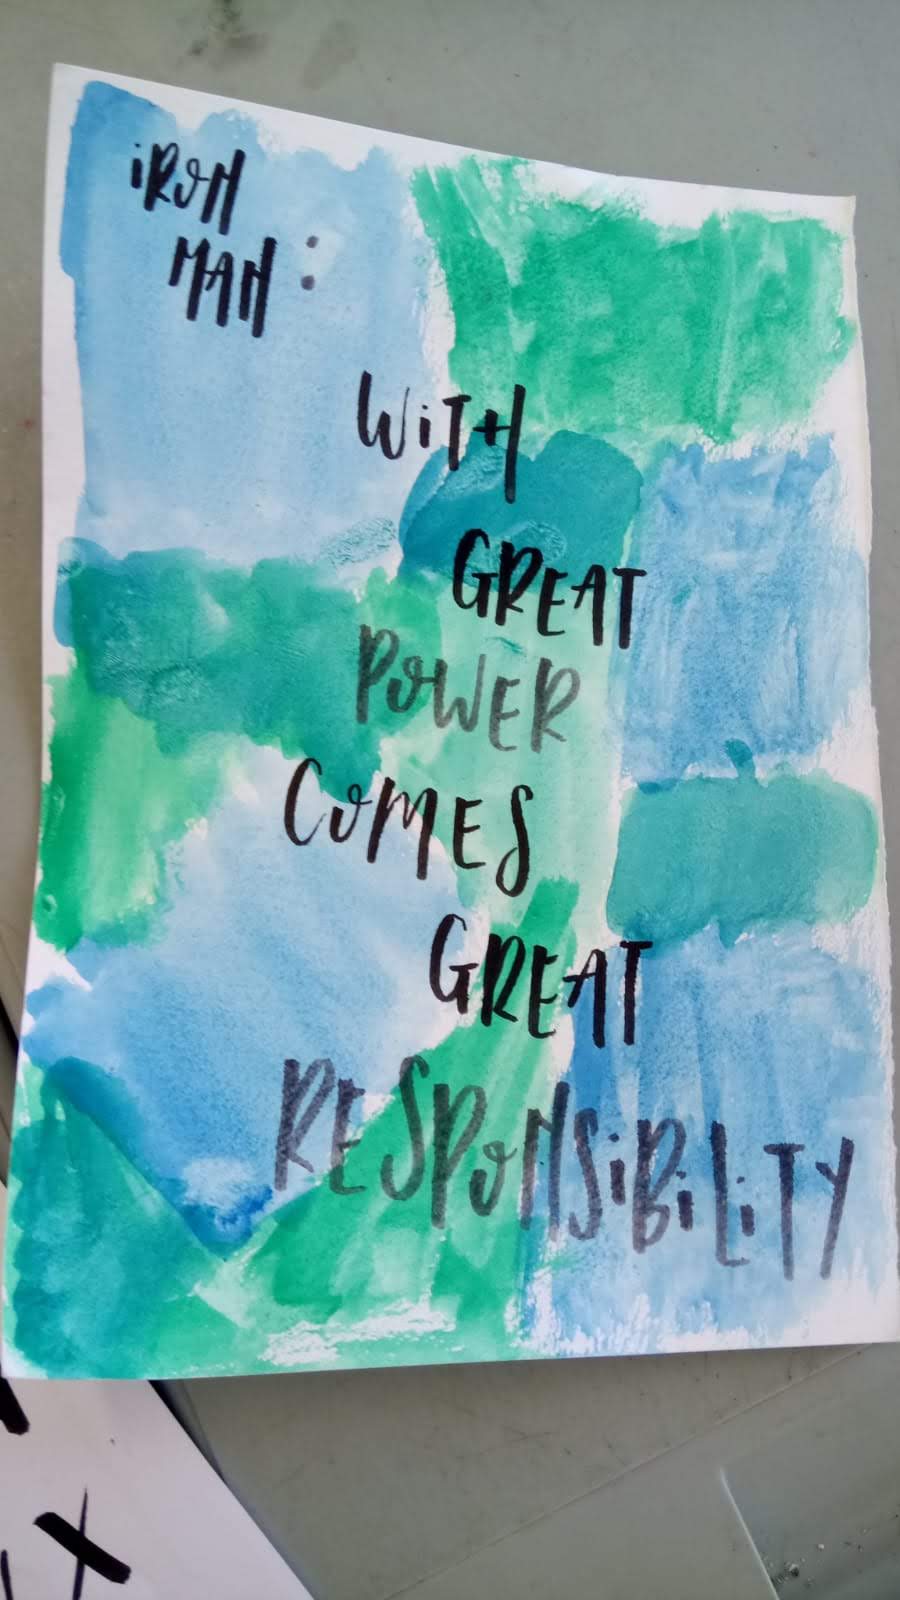 iRON
MAN:
WiTH
GREAT
POWER
COMES
GREAT
RESPONSiBiLiTY
X